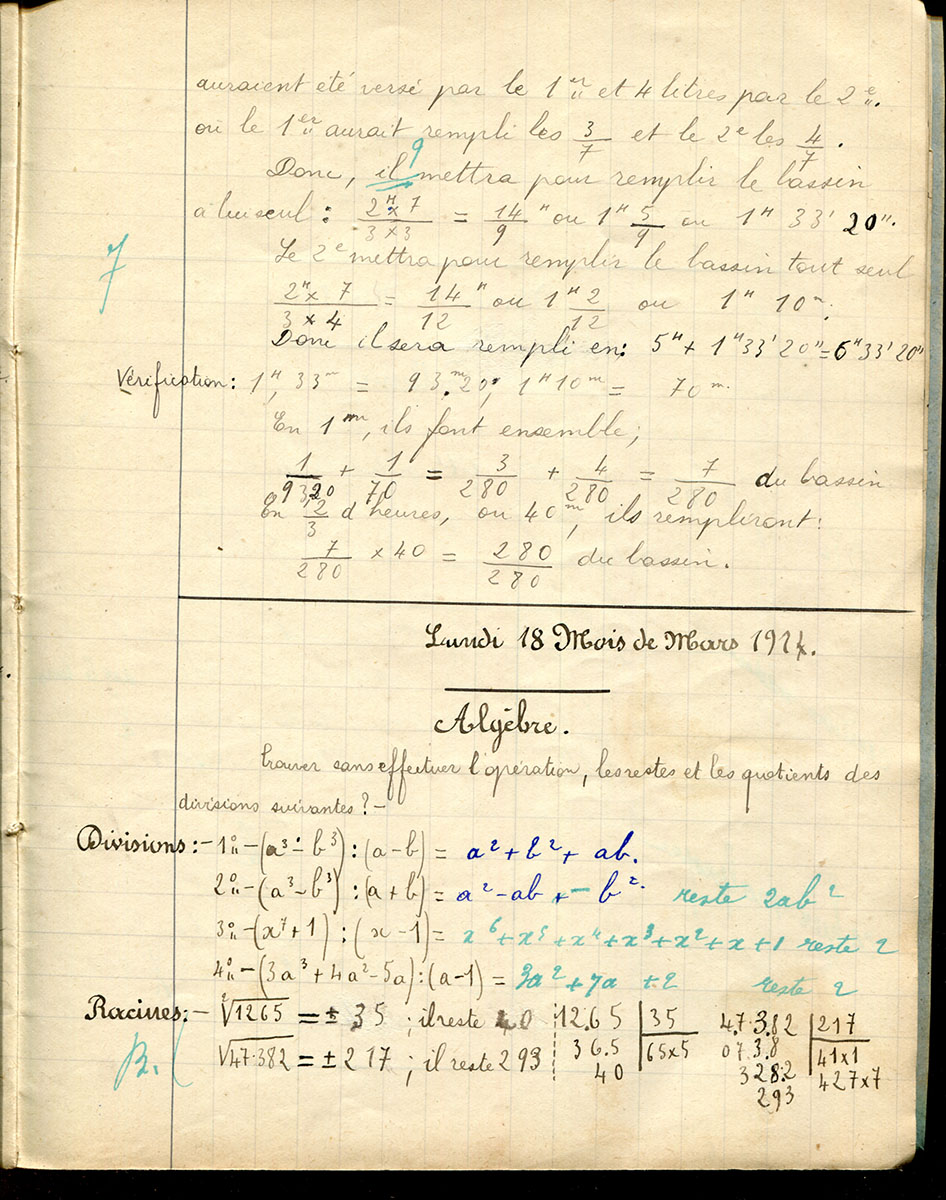 auraient été versé par le 1er " et 4 litres par le 2e ".
ou le 1er " aurait rempli les 3/7 et le 2e les 4/7.
9
Donc, il mettra pour remplir le bassin
à lui seul : 2H × 7 / 3 × 3 = 14/9 H ou 1H 5/9 ou 1H 33' 20".
7
Le 2e mettra pour remplir le bassin tout seul
2H × 7 / 3 × 4 = 14/12 H ou 1H 2/12 ou 1H 10m.
Donc il sera rempli en : 5H + 1H 33' 20" = 6H 33' 20"
Vérification : 1H, 33m = 93.m 20" ; 1H 10m = 70m.
En 1m, ils font ensemble ;
1/93,20 + 1/70 = 3/280 + 4/280 = 7/280 du bassin
En 2/3 d'heures, ou 40m, ils rempliront :
7/280 × 40 = 280/280 du bassin.
Lundi 18 Mois de Mars 192
Algèbre.
Trouver sans effectuer l'opération, les restes et les quotients des
divisions suivantes ? –
Divisions : – 1o – (a³ – b³) : (a – b) = a² + b² + ab.
2o – (a³ – b³) : (a + b) = a² – ab + – b². reste 2ab²
3o – (x⁷ + 1) : (x – 1) = x⁶ + x⁵ + x⁴ + x³ + x² + x + 1 reste 2
4o – (3a³ + 4a² – 5a) : (a – 1) = 3a² + 7a + 2 reste 2
Racines : – √1265 = ± 35 ; il reste 40 12.65 35
36.5 65×5
40
B. √47.382 = ± 217 ; il reste 293 4.7.3.82 217
07 3.8 41×1
328.2 427×7
293